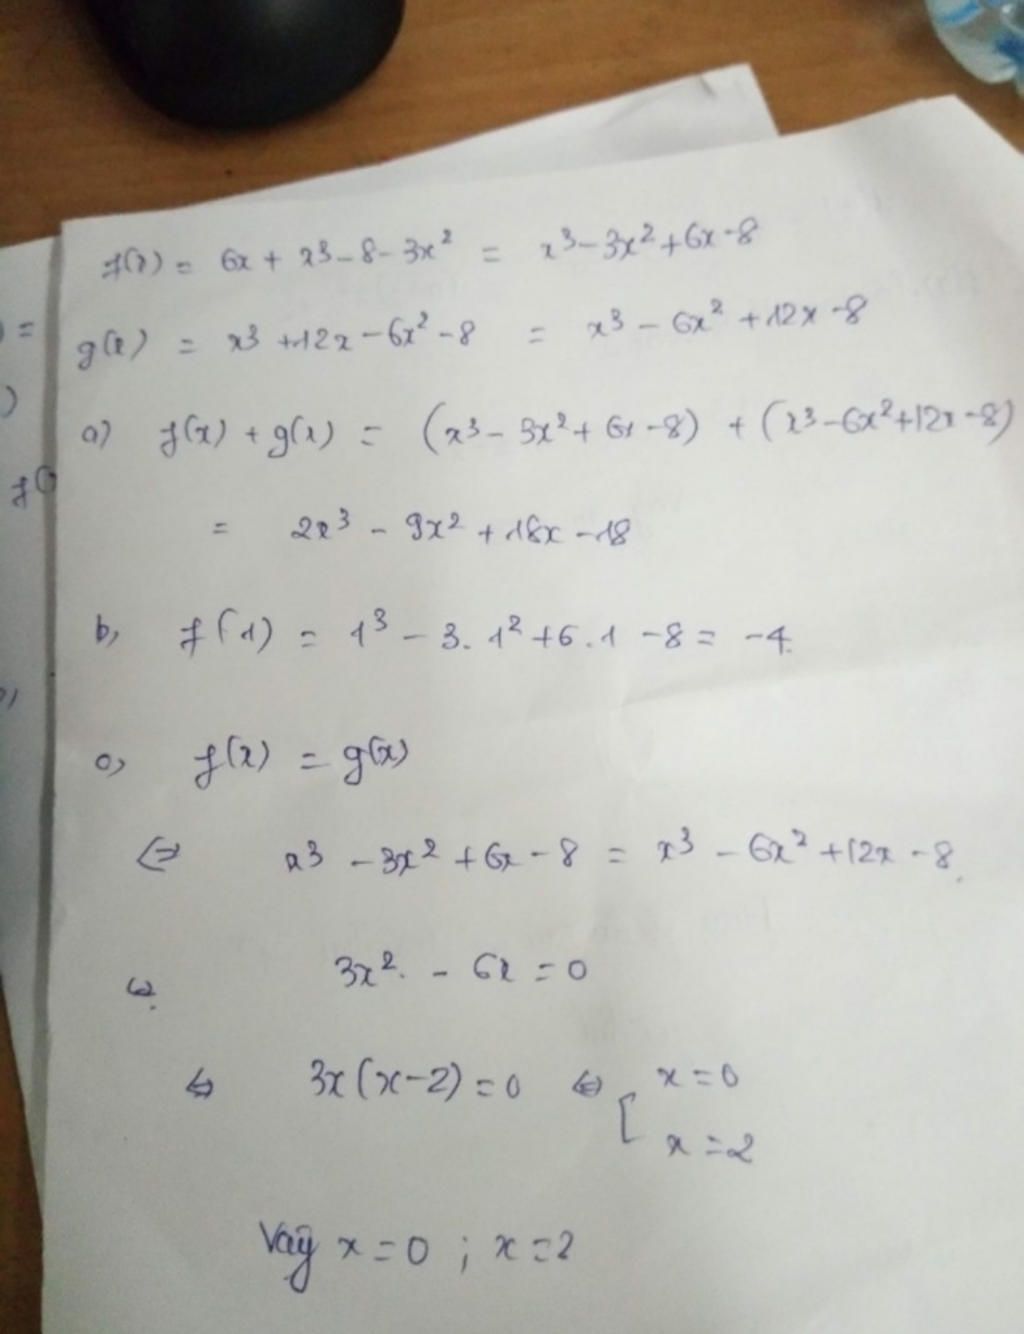 f(x) = 6x + x³ - 8 - 3x² = x³ - 3x² + 6x - 8
g(x) = x³ + 12x - 6x² - 8 = x³ - 6x² + 12x - 8
a) f(x) + g(x) = (x³ - 3x² + 6x - 8) + (x³ - 6x² + 12x - 8)
= 2x³ - 9x² + 18x - 18
b, f(1) = 1³ - 3. 1² + 6.1 - 8 = -4.
c, f(x) = g(x)
⇔ x³ - 3x² + 6x - 8 = x³ - 6x² + 12x - 8.
⇔ 3x² - 6x = 0
⇔ 3x(x-2) = 0 ⇔ [ x = 0
x = 2
Vậy x = 0 ; x = 2